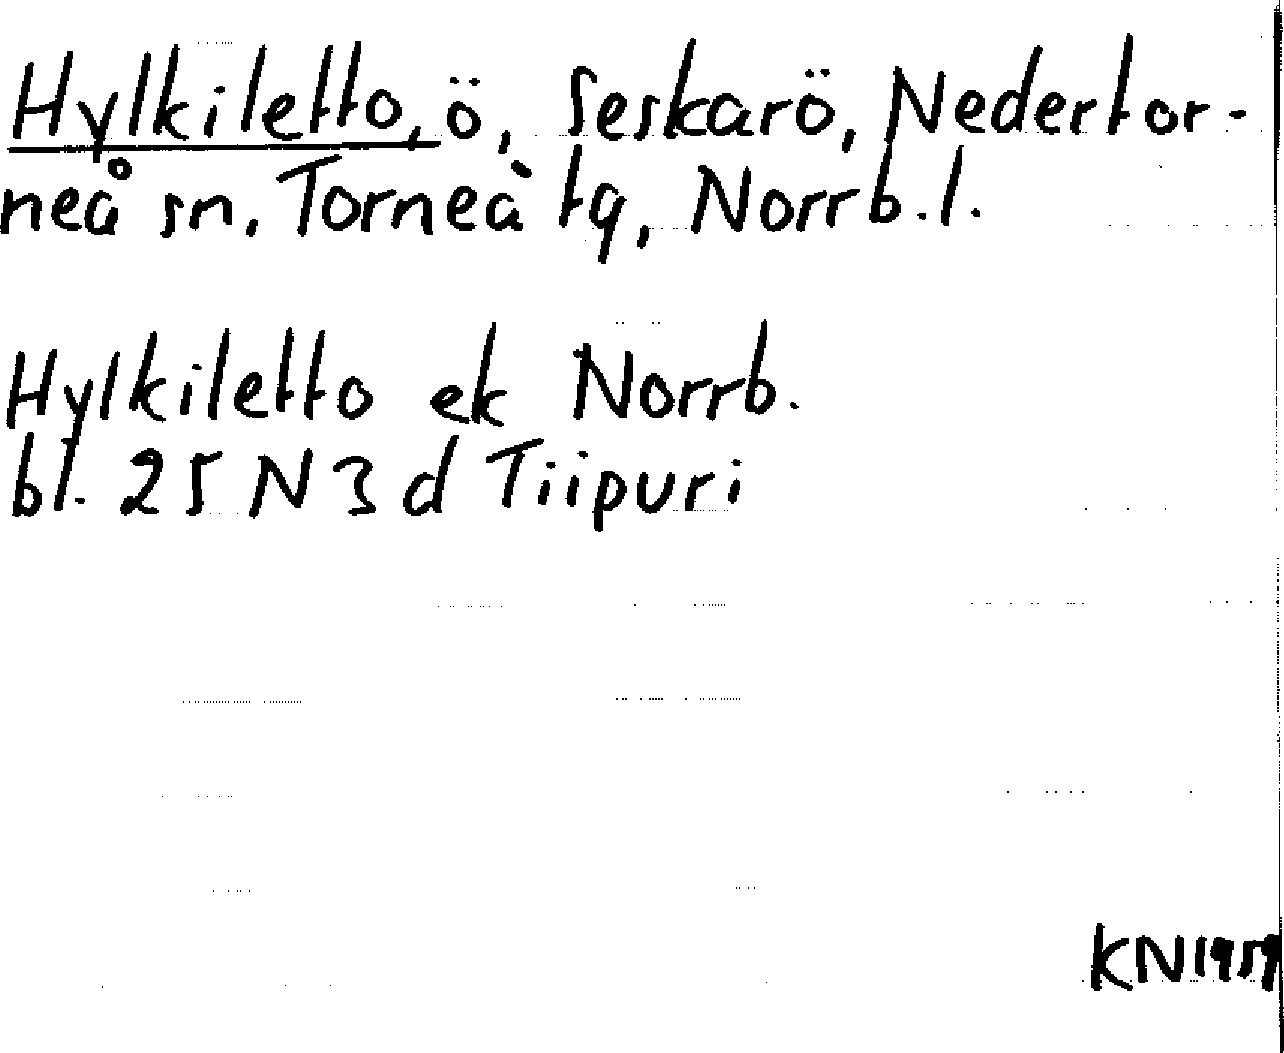 Hylkiletto, ö, Seskarö, Nedertor-
neå sn. Torneå tg, Norrb.l.
Hylkiletto ek Norrb.
bl. 25 N 3 d Tiipuri
KN1959